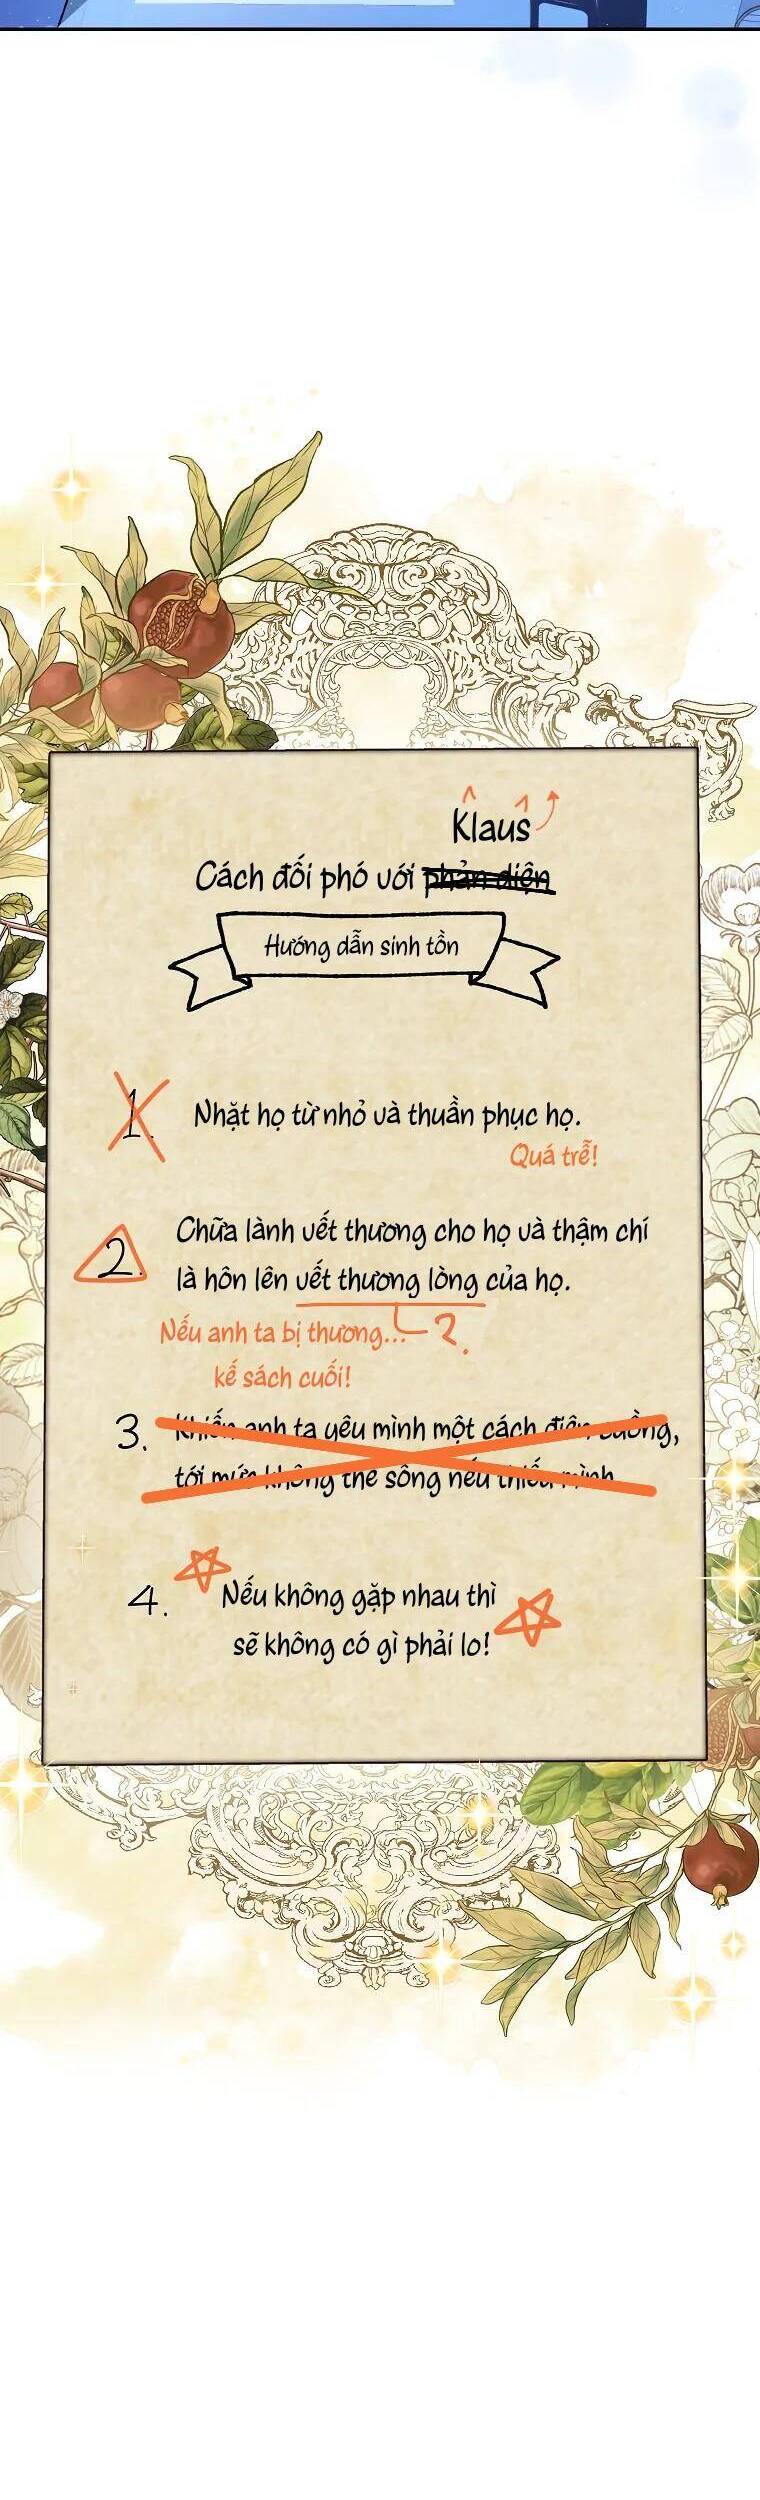 Klaus
Cách đối phó với phản diện
Hướng dẫn sinh tồn
1. Nhặt họ từ nhỏ và thuần phục họ.
Quá trễ!
2. Chữa lành vết thương cho họ và thậm chí
là hôn lên vết thương lòng của họ.
Nếu anh ta bị thương... ?
kế sách cuối!
3. Khiến anh ta yêu mình một cách điên cuồng,
tới mức không thể sống nếu thiếu mình
4. Nếu không gặp nhau thì
sẽ không có gì phải lo!